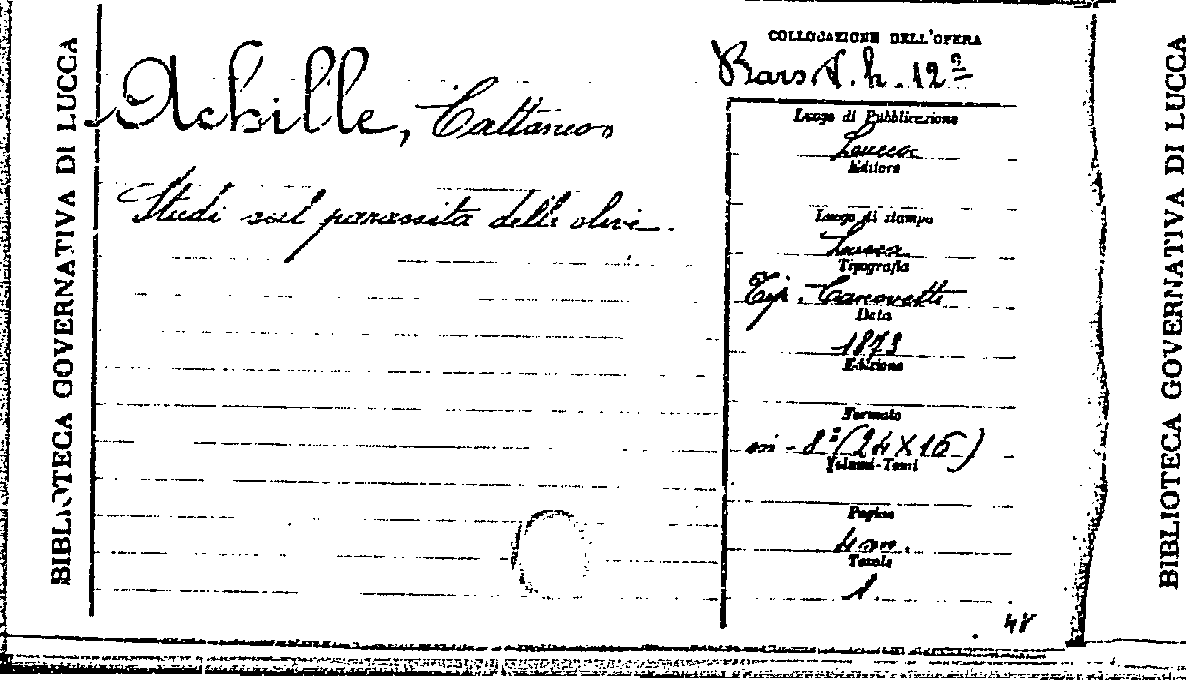 BIBLIOTECA GOVERNATIVA DI LUCCA
Achille, Cattaneo
Studi sul parassita delle olive.
COLLOCAZIONE DELL'OPERA
h. 12º
Luogo di Pubblicazione
Lucca
Editore
Luogo di stampa
Lucca
Tipografia
Tip. Canovetti
Data
1873
Edizione
Formato
in-8º (24X16)
Volumi-Tomi
Pagine
Tavole
1
48
BIBLIOTECA GOVERNATIVA DI LUCCA